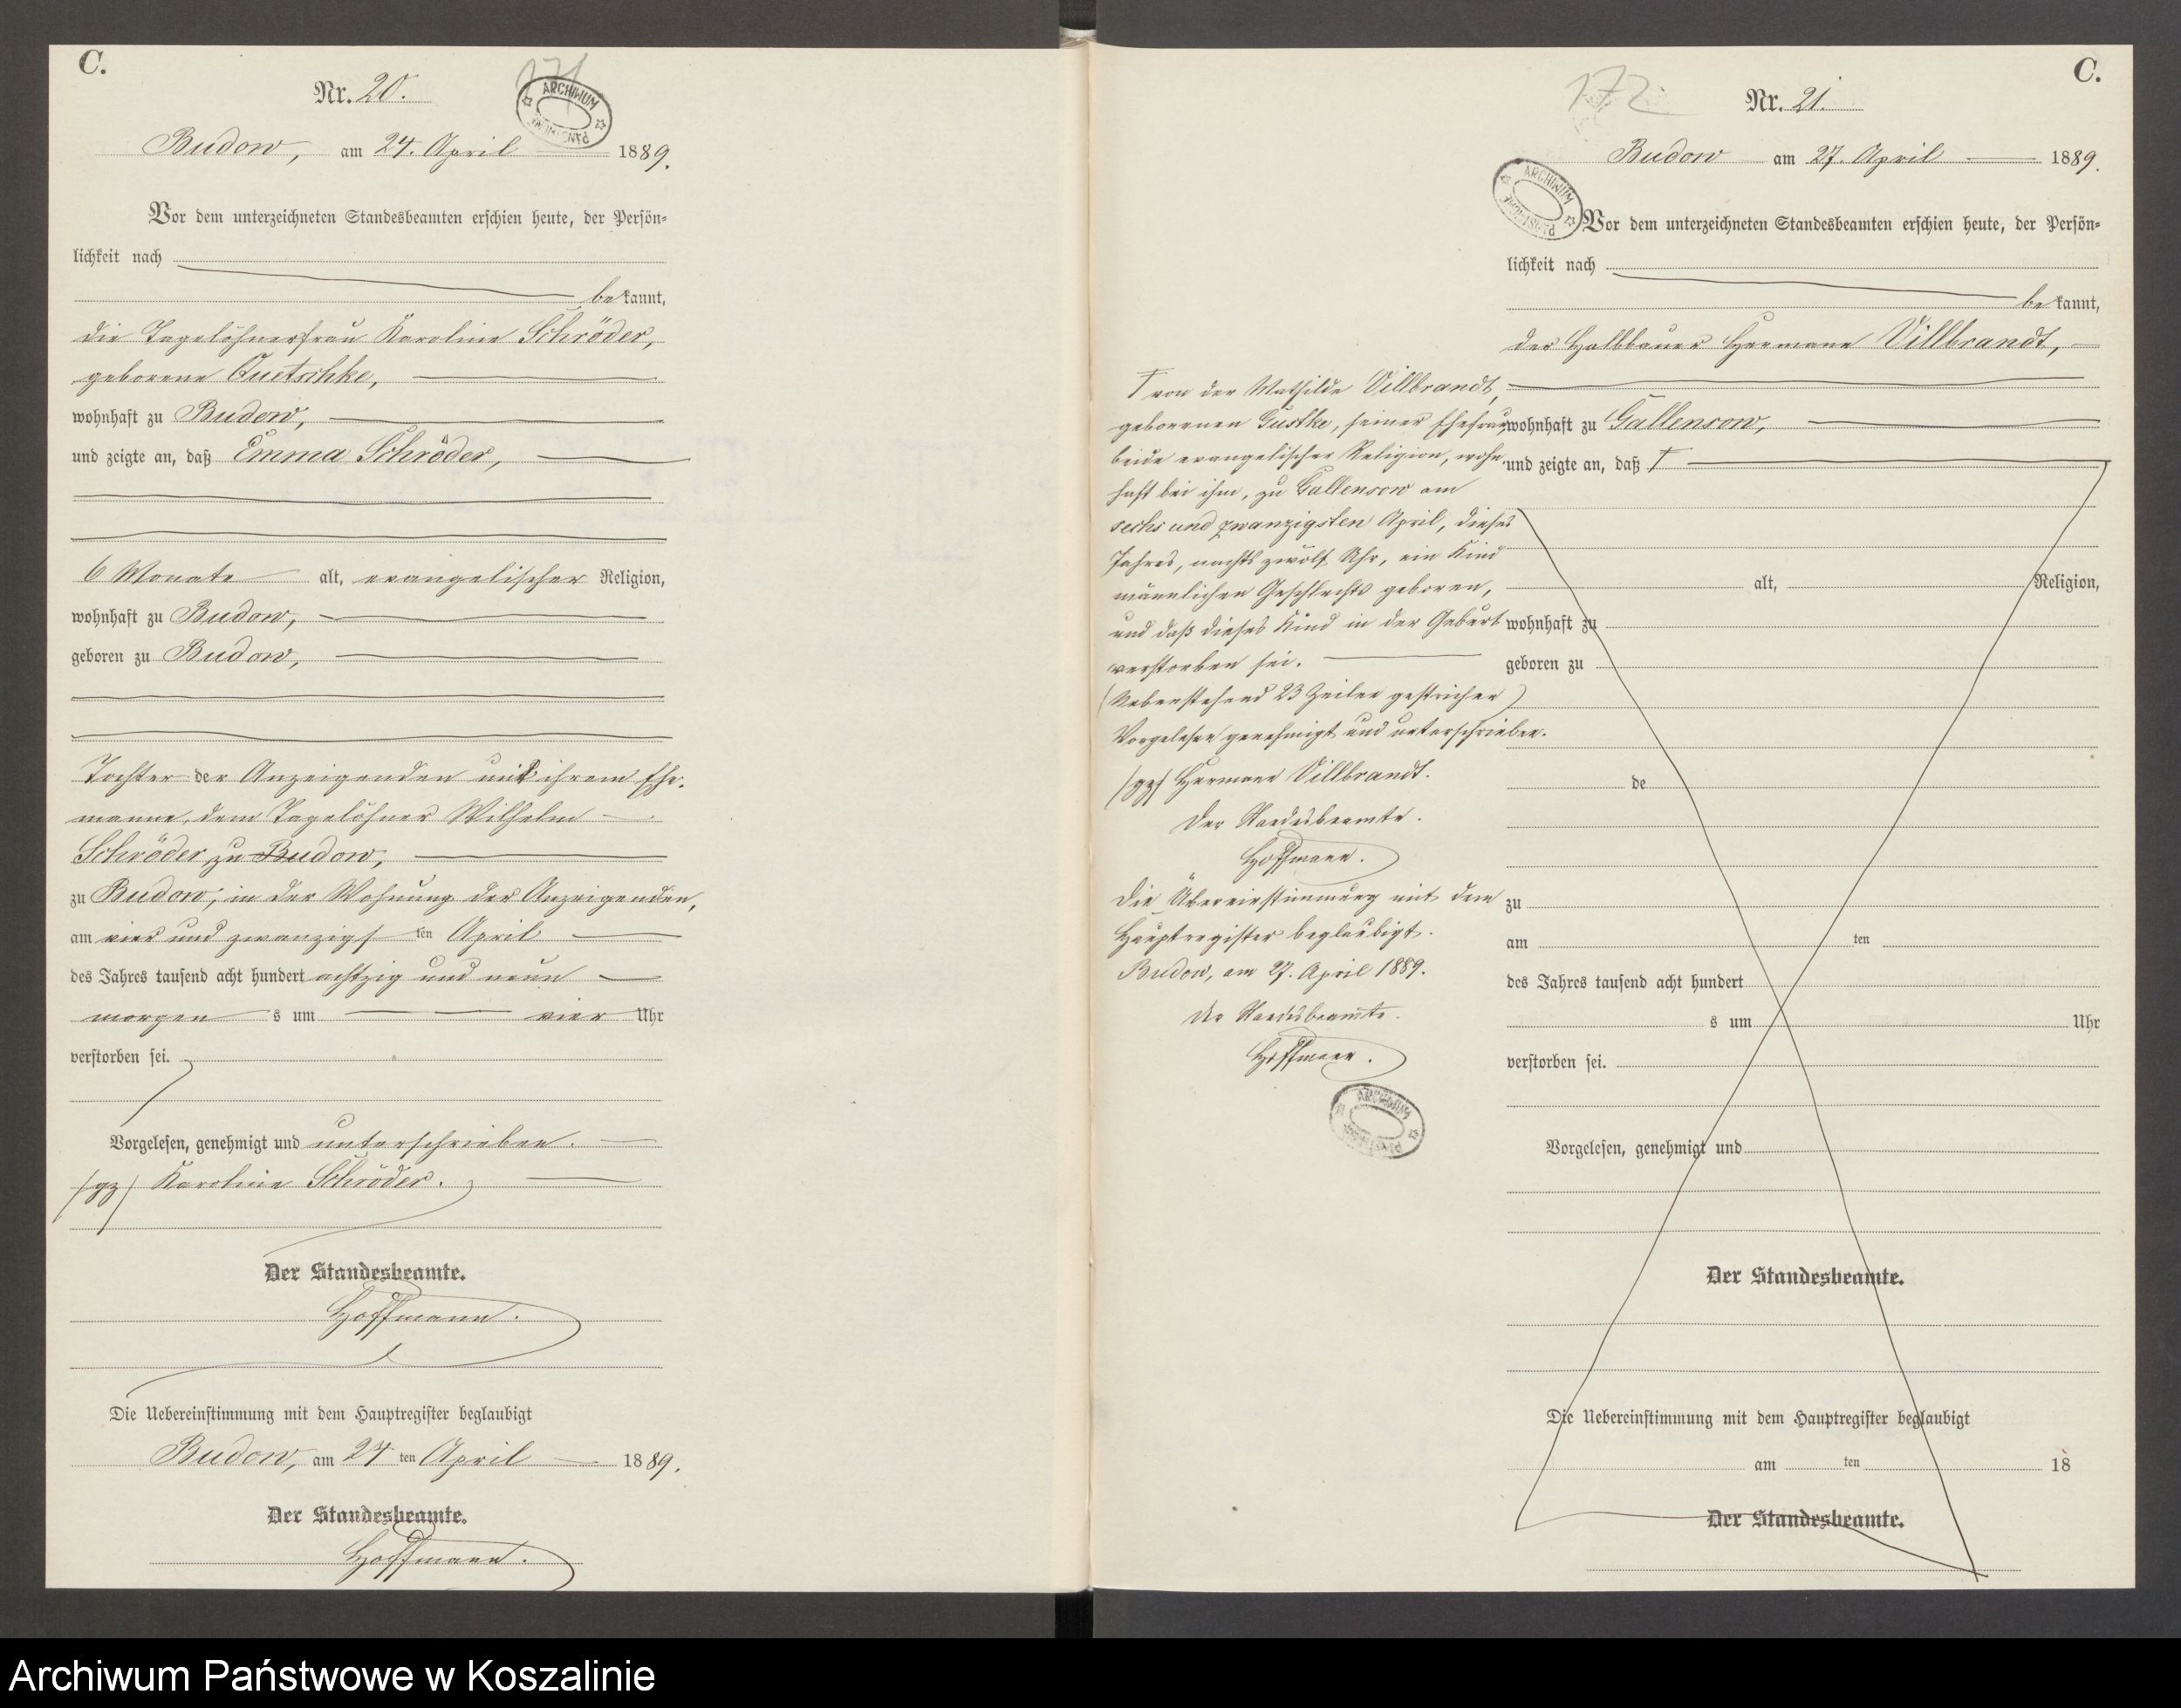 C.
Nr. 20.
171
ARCHIWUM
Budow, am 24. April 1889.
Vor dem unterzeichneten Standesbeamten erschien heute, der Persön-
lichkeit nach
bekannt,
die Tagelöhnerfrau Karoline Schröder,
geborene Quetschke,
wohnhaft zu Budow,
und zeigte an, daß Emma Schröder,
6 Monate alt, evangelischer Religion,
wohnhaft zu Budow,
geboren zu Budow,
Tochter der Anzeigenden und ihrem Ehe-
manne, dem Tagelöhner Wilhelm
Schröder zu Budow,
zu Budow, in der Wohnung der Anzeigenden,
am vier und zwanzigsten April
des Jahres tausend acht hundert achtzig und neun
morgens um vier Uhr
verstorben sei.
Vorgelesen, genehmigt und unterschrieben.
/gz/ Karoline Schröder.
Der Standesbeamte.
Hoffmann.
Die Uebereinstimmung mit dem Hauptregister beglaubigt
Budow, am 24ten April 1889.
Der Standesbeamte.
Hoffmann.
C.
172
Nr. 21.
Budow am 27. April 1889.
ARCHIWUM
Vor dem unterzeichneten Standesbeamten erschien heute, der Persön-
lichkeit nach
bekannt,
der Halbbauer Hermann Villbrandt,
wohnhaft zu Gallensow,
und zeigte an, daß †
alt, Religion,
wohnhaft zu
geboren zu
de
zu
am ten
des Jahres tausend acht hundert
s um Uhr
verstorben sei.
Vorgelesen, genehmigt und
Der Standesbeamte.
Die Uebereinstimmung mit dem Hauptregister beglaubigt
am ten 18
Der Standesbeamte.
† von der Mathilde Villbrandt,
geborenen Gustke, seiner Ehefrau,
beide evangelischer Religion, wohn-
haft bei ihm, zu Gallensow am
sechs und zwanzigsten April, dieses
Jahres, nachts zwölf Uhr, ein Kind
männlichen Geschlechts geboren,
und daß dieses Kind in der Geburt
verstorben sei.
(Nebenstehend 23 Zeilen gestrichen)
Vorgelesen genehmigt und unterschrieben.
/gz/ Hermann Villbrandt.
Der Standesbeamte.
Hoffmann.
Die Übereinstimmung mit dem
Hauptregister beglaubigt.
Budow, am 27. April 1889.
Der Standesbeamte.
Hoffmann.
ARCHIWUM
Archiwum Państwowe w Koszalinie